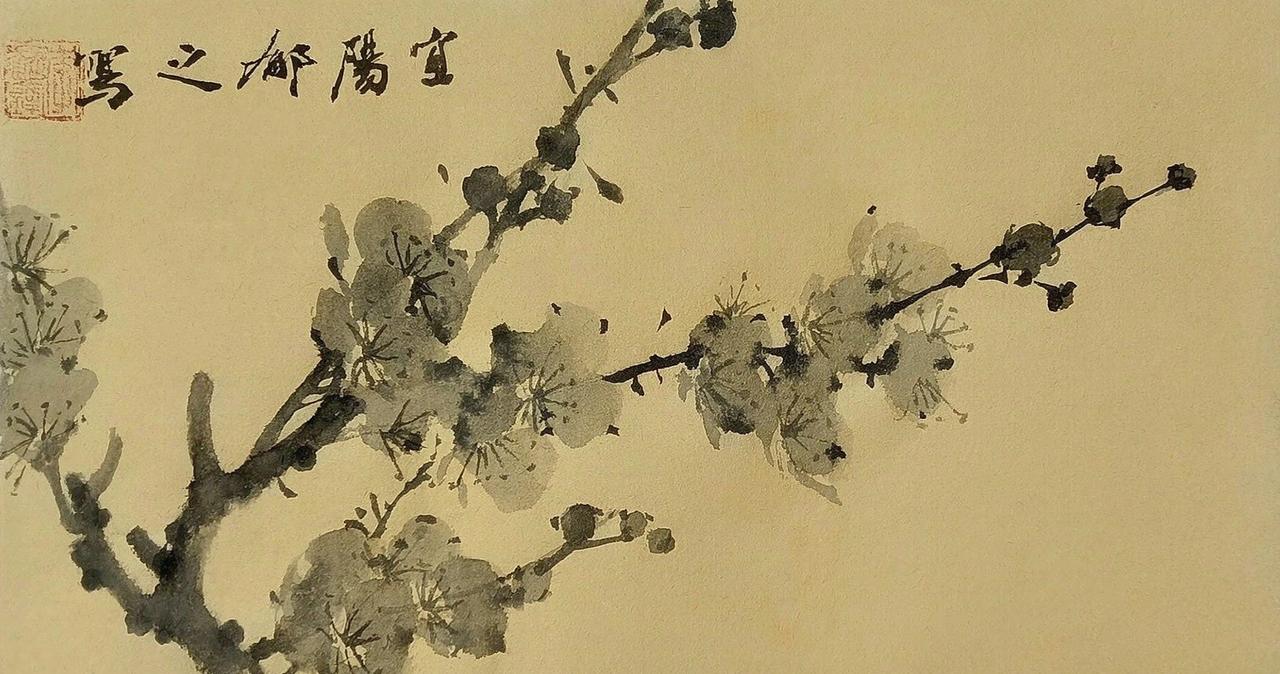 宜陽郁之寫